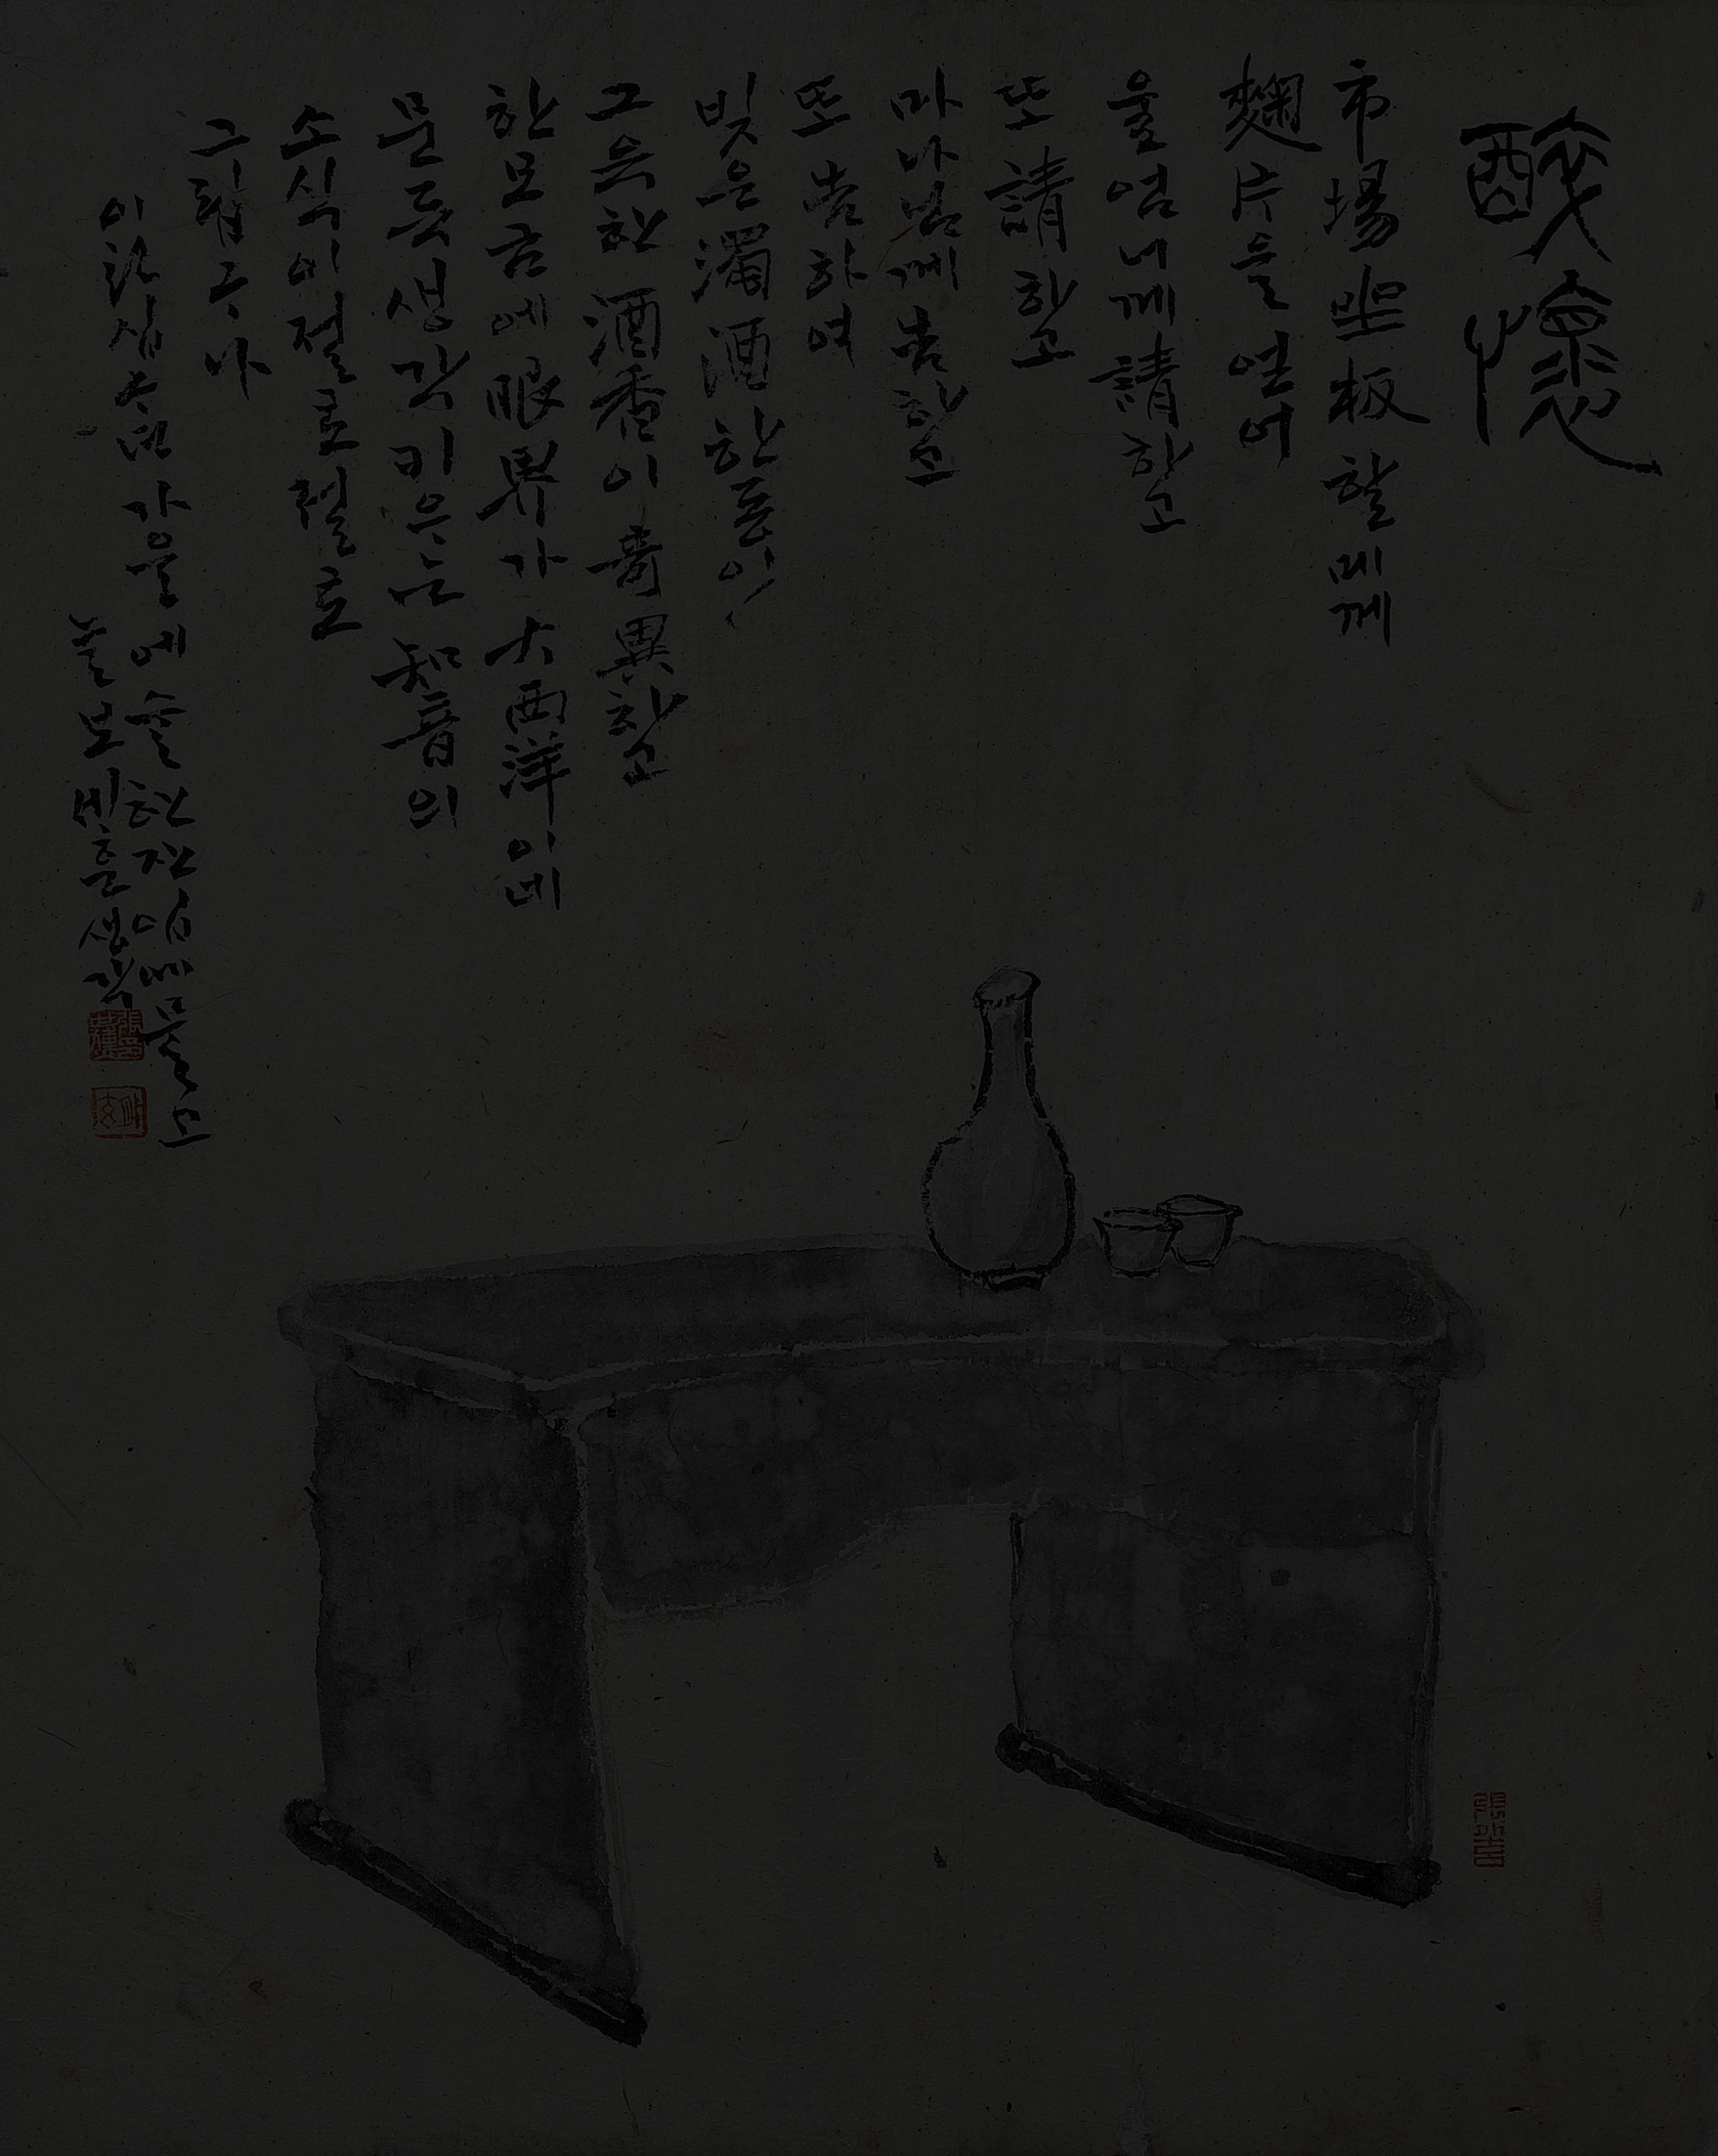 醉懷
市場坐板할메께
麯片을 얻어
울엄니께 請하고
또 請하고
마나님께 告하고
또 告하여
빚은 濁酒 한동이
그윽한 酒香이 奇異하고
한모금에 眼界가 大西洋이네
문득 생각키우는 知音의
소식이 절로절로
그립구나
가을에 술한잔 입에 물고
생각